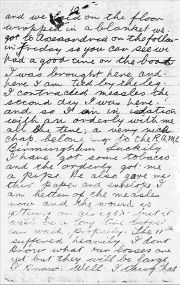 and we laid on the floor
wrapped in a blanket. we
got to Alexandria on the follow-
in Friday so you can see we
had a good time on the boat
I was brought here and
here I am tied by the leg
I contracted measles the
second day I was here
and so I am in isolation
with one orderly with me
all the time, a very nice
chap belong to the R.A.M.C.
Birmingham Luckily
I have got some tobacco
and the orderly got me
a pipe. He also gave me
this paper and envelope. I
am better of the measles
now and the wound is
getting alright but it
will be a long time before I
can walk properly. The 11th
suffered heavily. I dont
know what our losses are
yet but they will be large
I know. Well I think that